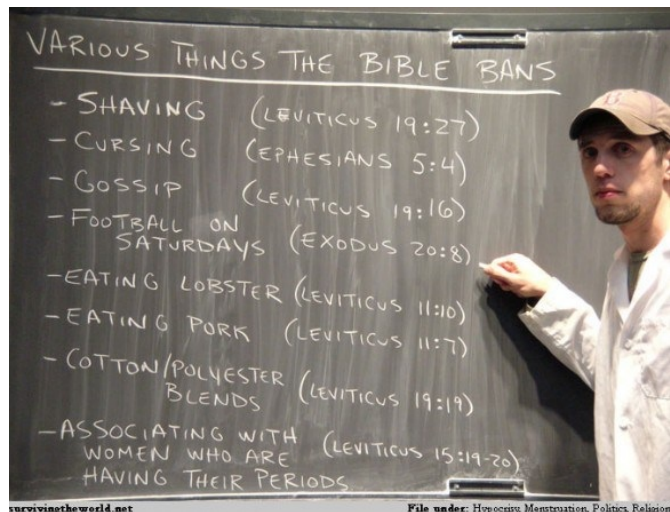 VARIOUS THINGS THE BIBLE BANS
- SHAVING (LEVITICUS 19:27)
- CURSING (EPHESIANS 5:4)
- GOSSIP (LEVITICUS 19:16)
- FOOTBALL ON
SATURDAYS (EXODUS 20:8)
- EATING LOBSTER (LEVITICUS 11:10)
- EATING PORK (LEVITICUS 11:7)
- COTTON/POLYESTER
BLENDS (LEVITICUS 19:19)
- ASSOCIATING WITH
WOMEN WHO ARE (LEVITICUS 15:19-20)
HAVING THEIR PERIODS
survivingtheworld.net File under: Hypocrisy, Menstruation, Politics, Religion